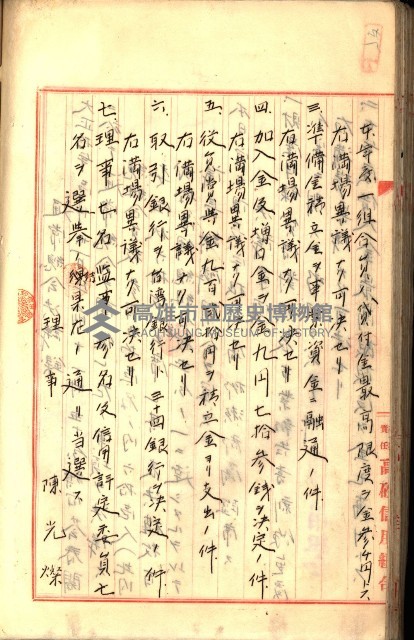 本年度一組合員ノ貸付金最高限度ヲ金参千円トス
右満場異議ナク可決セリ
三、準備金積立金ヲ事業資金ニ融通ノ件
右満場異議ナク可決セリ
四、加入金及増口金ヲ金九円七拾参銭ヲ決定ノ件
右満場異議ナク可決セリ
五、役員賞与金九百
円ヲ積立金ヨリ支出ノ件
右満場異議ナク可決セリ
六、取引銀行ヲ台湾銀行
銀行ヲ決定ノ件
右満場異議ナク可決セリ
七、理事七名監事参名及信用評定委員七
名ヲ選挙ノ結果左ノ通リ当選ス
理事 陳光燦
高雄市立歷史博物館
KAOHSIUNG MUSEUM OF HISTORY
信用組合